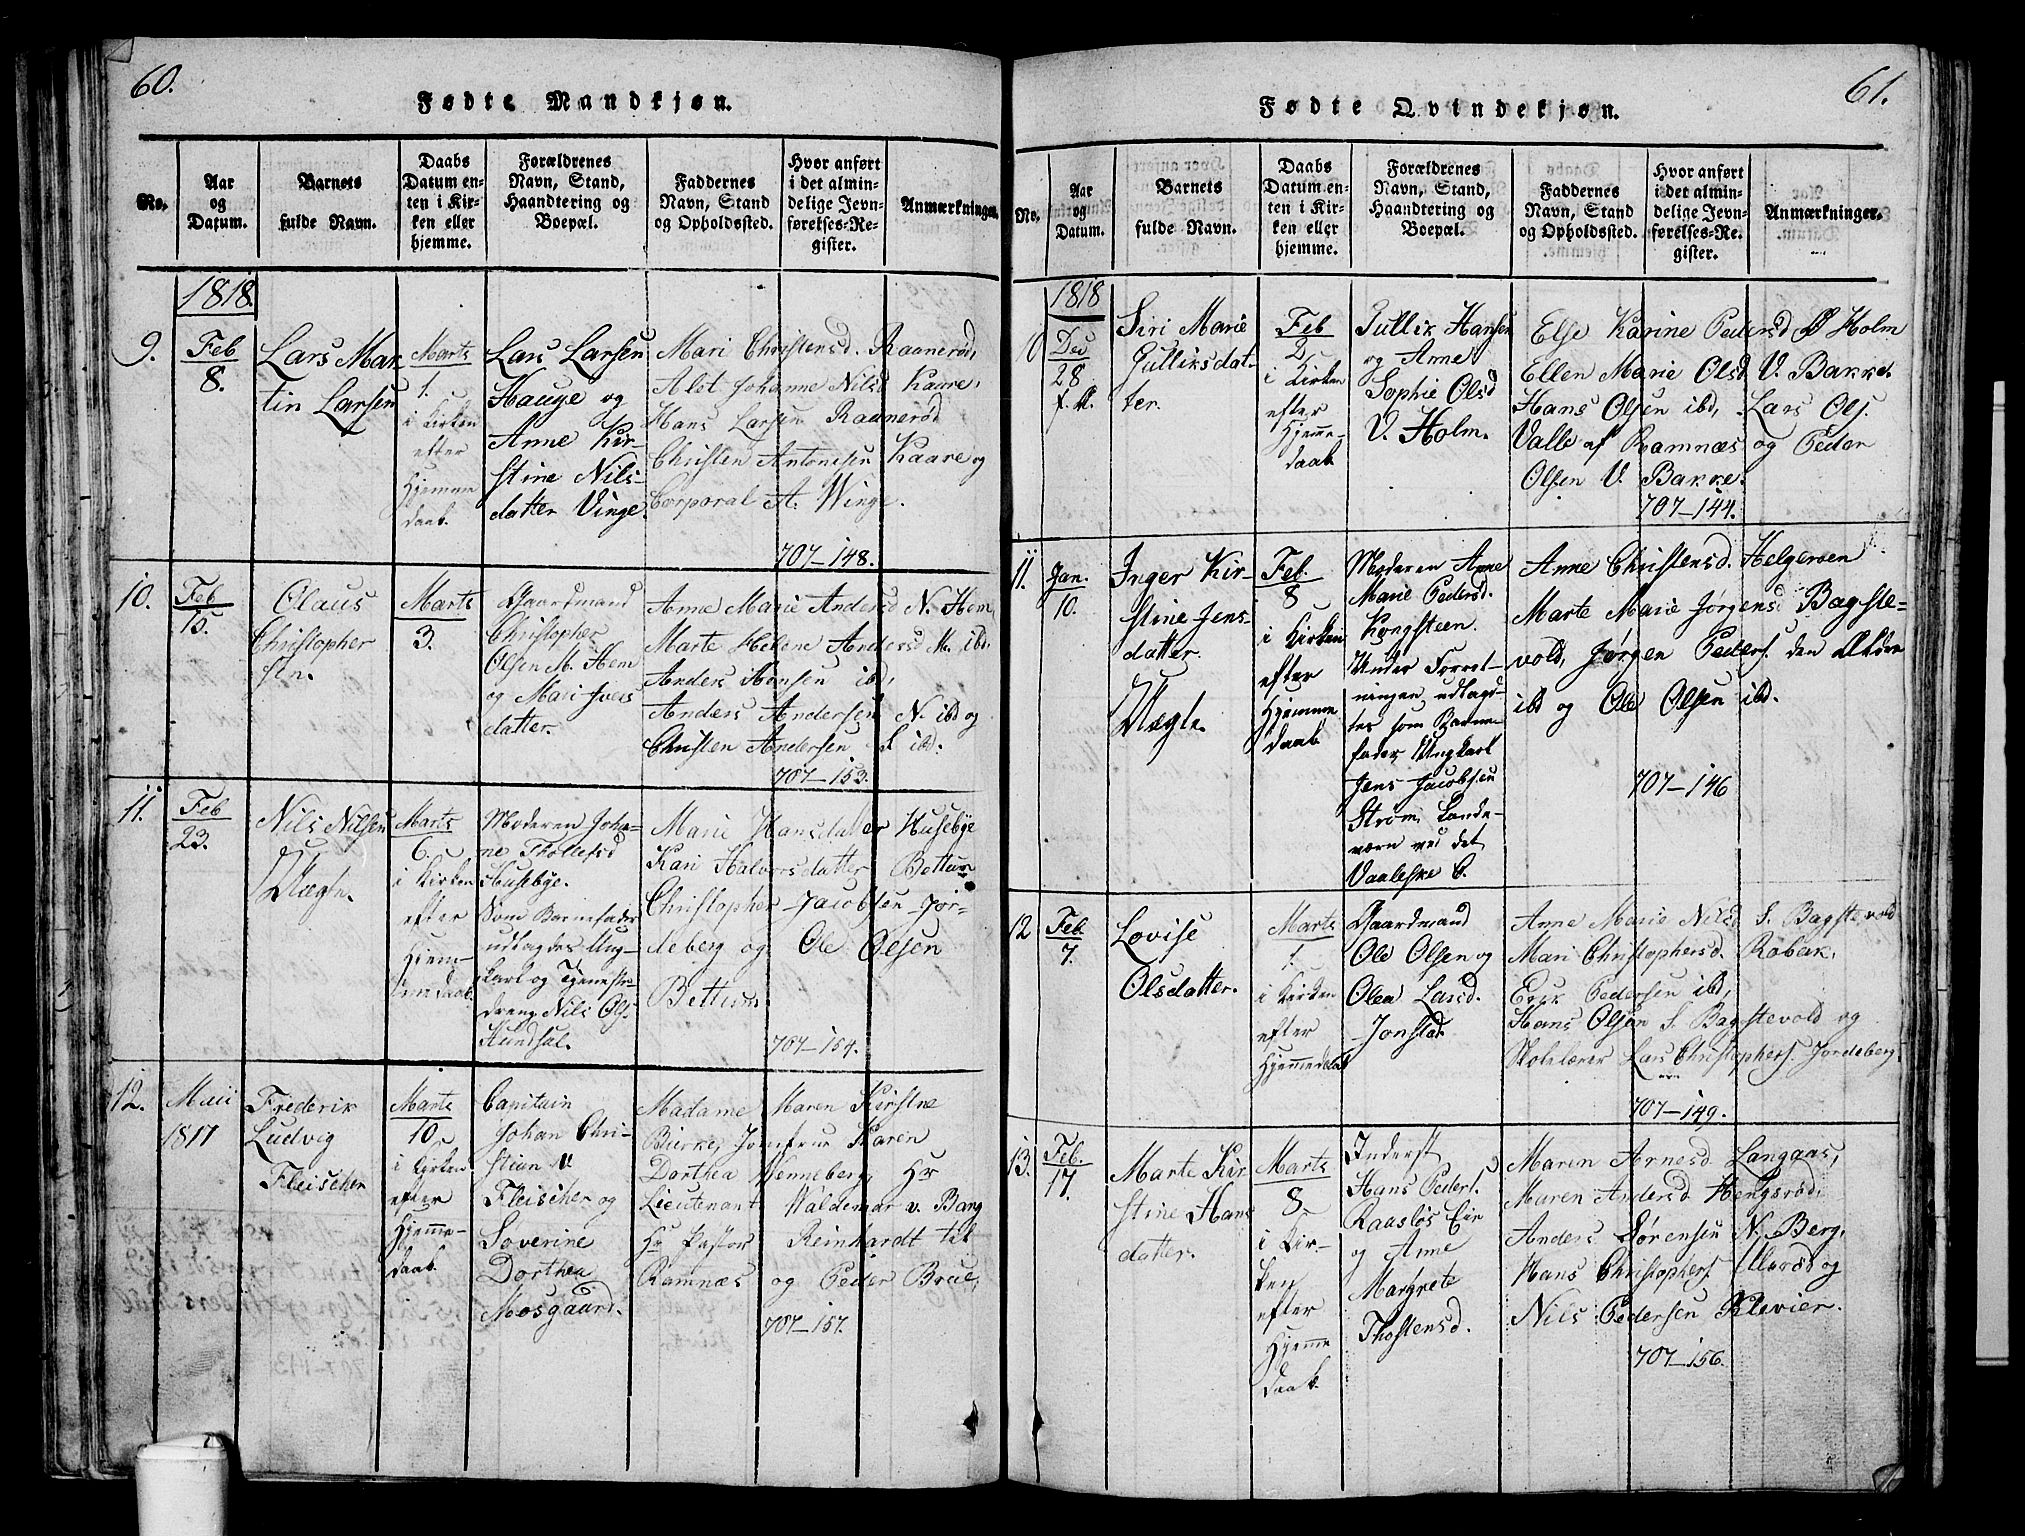 60.
Fødte Mandkjøn.
No.
Aar
og
Datum.
Barnets
fulde Navn.
Daabs
Datum en-
ten i Kir-
ken eller
hjemme.
Forældrenes
Navn, Stand,
Haandtering og
Boepæl.
Faddernes
Navn, Stand
og Opholdssted.
Hvor anført
i det almin-
delige Jevn-
førelses-Re-
gister.
Anmærkninger.
1818.
9.
Feb
8.
Lars Mar
tin Larsen
Marts
1.
i Kirken
efter
Hjemme
daab.
Lars Larsen
Hauge og
Anne Kir-
stine Nils-
datter Vinge.
Mari Christensd. Raanerød,
Alet Johanne Nilsd Kaare,
Hans Larsen Raanerød
Christen Antonisen Kaare og
Corporal A. Winge.
707-148.
10.
Feb
15.
Olaus
Christopher
sen.
Marts
3.
Gaardmand
Christopher
Olsen M. Hem
og Mari Ivers
datter.
Anne Marie Andersd N. Hem,
Marte Helene Andersd M. ibd,
Anders Hansen ibd,
Anders Andersen N. ibd og
Christen Andersen S ibd.
707-153.
11.
Feb
23.
Nils Nilsen
Uægte.
Marts
6.
i Kirken
efter
Hjem-
medaab.
Moderen Joha-
ne Tholefsd
Husebye.
Som Barnefader
udlagdes Ung-
karl og Tjeneste-
dreng Nils Ols.
Hundsal.
Marie Hansdatter Husebye
Kari Halvorsdatter Bettum
Christopher Jacobsen Jor-
deberg og Ole Olsen
Bettum.
707-154.
12.
Maii
1817
Frederik
Ludvig
Fleischer
Marts
10
i Kirken
efter
Hjemme-
daab.
Capitain
Johan Chri-
stian v.
Fleischer og
Soverine
Dorthea
Mosgaard.
Madame Maren Kirstne
Bierke, Jomfrue Karen
Dorthea Wenneberg, Hr
Lieutenant Waldemar v. Bang
Hr Pastor Reinhardt til
Ramnæs og Peder Brue,
707-157.
61.
Fødte Qvindekjøn.
No.
Aar
og
Datum.
Barnets
fulde Navn.
Daabs
Datum en-
ten i Kir-
ken eller
hjemme.
Forældrenes
Navn, Stand,
Haandtering og
Boepæl.
Faddernes
Navn, Stand
og Opholdssted.
Hvor anført
i det almin-
delige Jevn-
førelses-Re-
gister.
Anmærkninger.
1818
10
Dec
28
f. A.
Siri Marie
Gulliksdat-
ter.
Feb
2
i Kirken
efter
Hjemme-
daab.
Gullik Hansen
og Anne
Sophie Olsd
V. Holm.
Else Karine Pedersd Ø Holm
Ellen Marie Olsd V. Bakke.
Hans Olsen ibd, Lars Ols.
Valle af Ramnæs og Peder
Olsen V. Bakke.
707-144.
11.
Jan.
10.
Inger Kir-
stine Jens-
datter.
Uægte.
Feb.
8
i Kirken
efter
Hjemme
daab
Moderen Anne
Marie Pedersd.
Kongsteen.
Under Forret-
ningen udlagd-
tes som Barne
fader Ungkarl
Jens Jacobsen
Strøm, Lande-
værn ved det
Vaaleske C.
Anne Christensd. Helgeroen
Marte Marie Jørgensd Bagste-
vold, Jørgen Peders. den Ældre
ibd og Ole Olsen ibd.
707-146
12
Feb
7.
Lovise
Olsdatter.
Marts
1.
i Kirken
efter
Hjemmedaab
Gaardmand
Ole Olsen og
Olea Larsd.
Jonstad.
Anne Marie Nilsd S. Bagstevold
Mari Christophersd. Robek,
Erik Pedersen ibd,
Hans Olsen S. Bagstevold og
Skolelærer Lars Christophers. Jordeberg.
707-149.
13.
Feb.
17.
Marte Kir
stine Hans
datter.
Marts
8.
i Kir-
ken
efter
Hjemme
daab.
Inderst
Hans Peders.
Raasløs Eie
og Anne
Margrete
Thostensd.
Maren Arnesd Langaas,
Maren Andersd Hengsrød,
Anders Sørensen N. Berg,
Hans Christophers. Ullerød og
Nils Pedersen Klevier.
707-156.